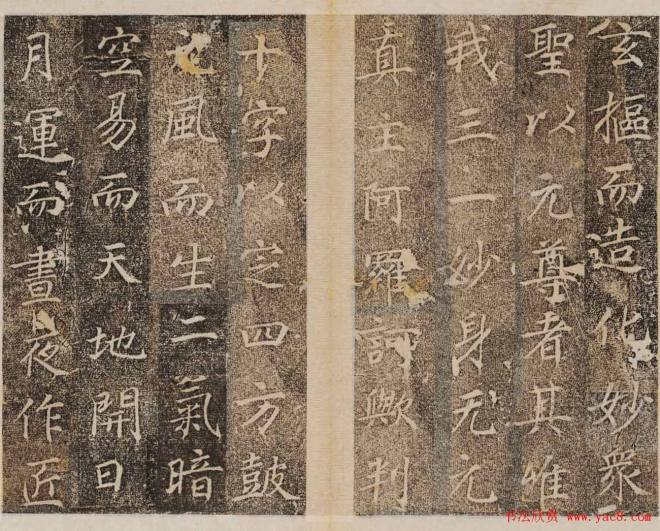 玄樞而造化妙衆
聖以元尊者其唯
我三一妙身无元
真主阿羅訶歟判
十字以定四方鼓
元風而生二氣暗
空易而天地開日
月運而晝夜作匠
书法欣赏 www.yac8.com